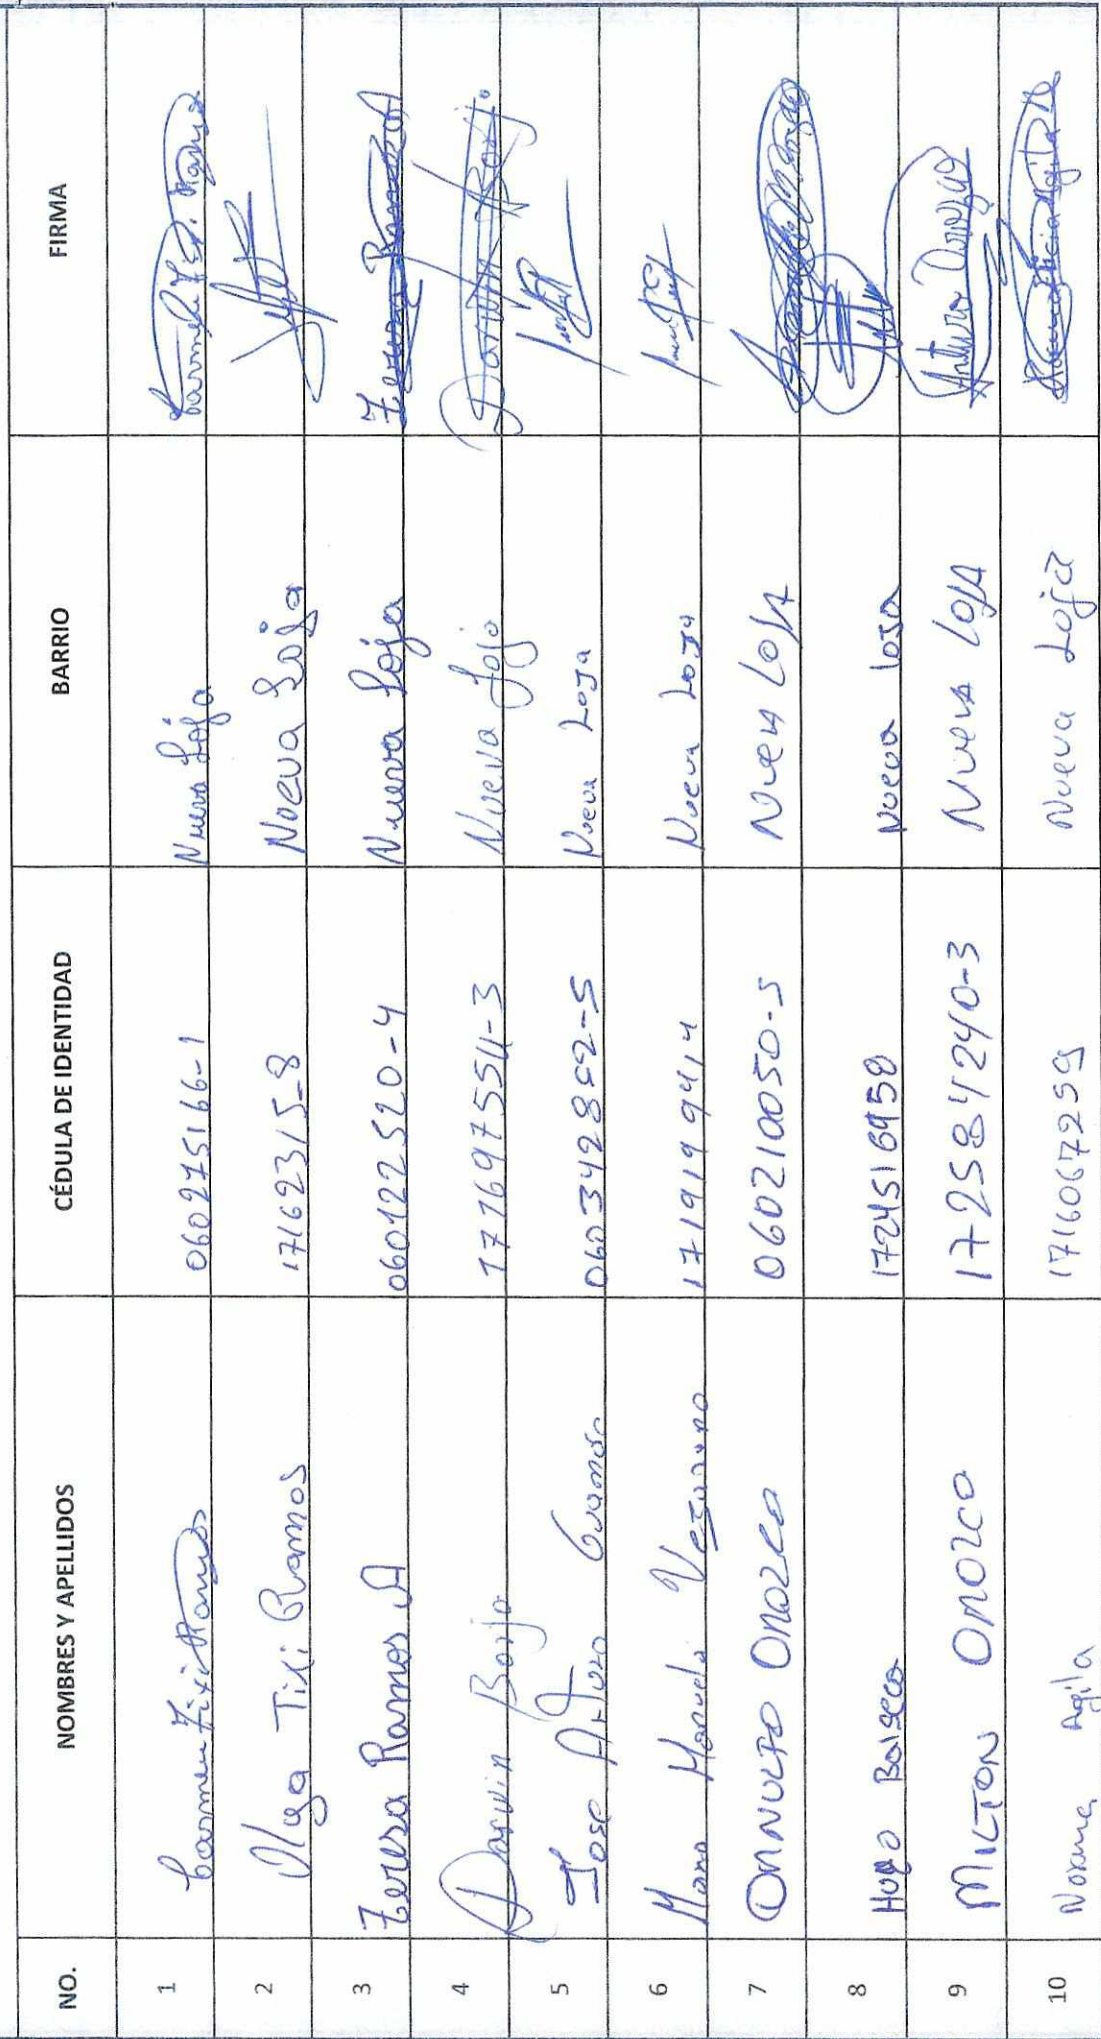 NO. NOMBRES Y APELLIDOS CÉDULA DE IDENTIDAD BARRIO FIRMA
1 Carmen Tixi Ramos 060275166-1 Nueva Loja Carmen Tixi Ramos
2 Olga Tixi Ramos 17162315-8 Nueva Loja
3 Teresa Ramos A 060122520-4 Nueva Loja Teresa Ramos A
4 Darwin Borja 171697554-3 Nueva Loja Darwin Borja.
5 Jose Arturo 060342852-5 Nueva Loja
6 Maria Manuela 1719199414 Nueva Loja
7 ORNULFO OROZCO 060210050-5 Nueva LOJA
8 Hugo Balseca 1724516958 Nueva LOJA
9 MILTON OROZCO 172584240-3 Nueva LOJA
10 Norma Agila 1716067259 Nueva Loja